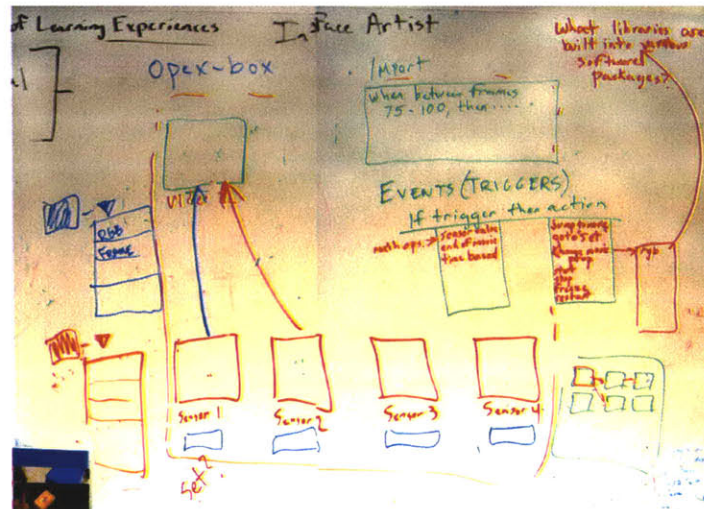 of Learning Experiences
In Face Artist
What libraries are
built into various
software
packages?
Open-box
Import
When between frames
75-100, then.....
EVENTS (TRIGGERS)
If trigger then action
Video
RGB
Frame
math ops.
sensor value
end of movie
time based
Swap tracks
goto set
Change movie
prop
start
stop
restart
rgb
Sensor 1
Sensor 2
Sensor 3
Sensor 4
Set?